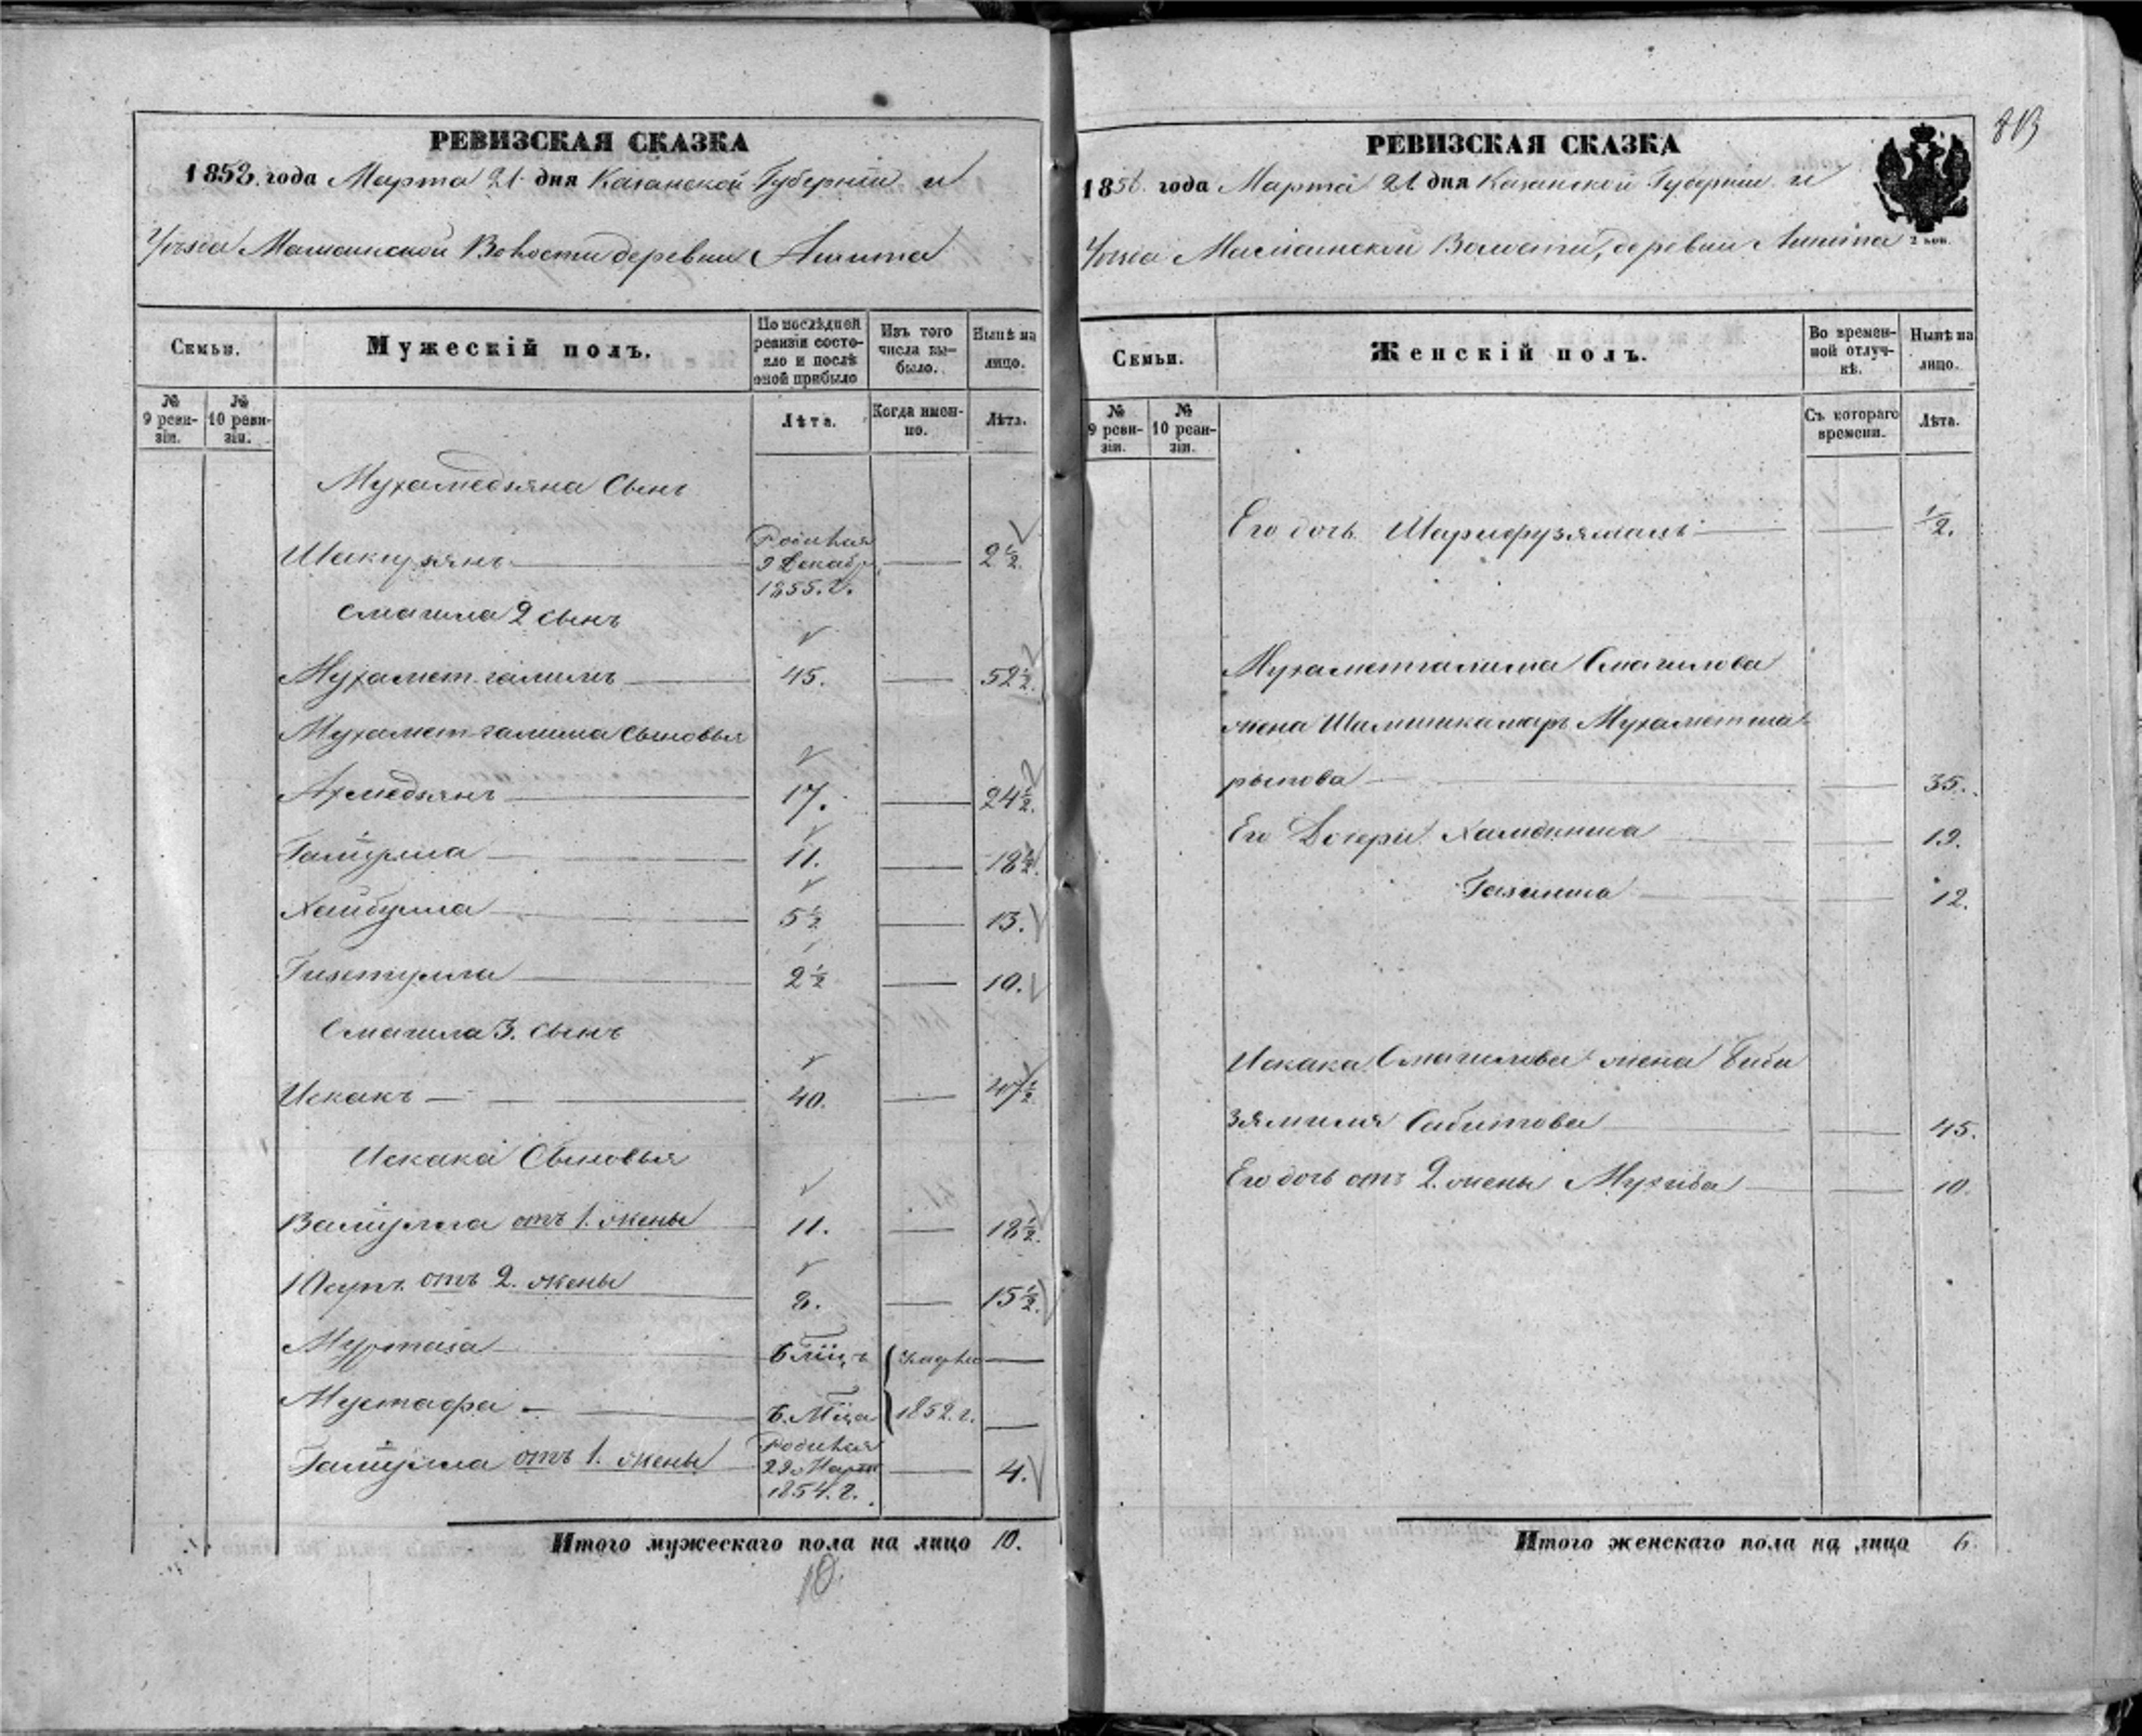 РЕВИЗСКАЯ СКАЗКА
1858. года Марта 21. дня Казанской Губерніи и
Уѣзда Мамсинской Волости деревни
Семьи.
Мужескій полъ.
По послѣдней ревизіи состояло и послѣ оной прибыло
Изъ того числа выбыло.
Нынѣ на лицо.
№ 9 ревизіи.
№ 10 ревизіи.
Лѣта.
Когда именно.
Лѣта.
Мухамедзяна Сынъ
Шакирзянъ Родился 9 Декабр. 1855. г. 2 1/2.
Смагила 2 сынъ
Мухамет-галимъ 45. 52 1/2.
Мухамет-галима Сыновья
Ахмедзянъ 17. 24 1/2.
11. 18 1/2.
Хайбулла 5 1/2 13.
Гизетулла 2 1/2 10.
Смагила 3. Сынъ
Искакъ 40. 47 1/2
Искака Сыновья
Валіулла отъ 1. жены 11. 18 1/2.
Юсупъ отъ 2. жены 8. 15 1/2.
Муртаза 6 Мѣц.
Мустафа 6. Мѣца 1852. г.
Галіулла отъ 1. жены Родился 22. Март 1854. г. 4.
Итого мужескаго пола на лицо 10.
10.
813
РЕВИЗСКАЯ СКАЗКА
1858. года Марта 21. дня Казанской Губерніи и
Уѣзда Мамсинской Волости, деревни
2 коп.
Семьи.
Женскій полъ.
Во временной отлучкѣ.
Нынѣ на лицо.
№ 9 ревизіи.
№ 10 ревизіи.
Съ котораго времени.
Лѣта.
Его дочь Шарифузямалъ 1/2.
Мухаметгалима Смагилова
жена Шамшикамаръ Мухаметша
рыпова 35.
Его Дочери 19.
12.
Искака Смагилова жена Биби
зямиля Сабитова 45.
Его дочь отъ 2. жены Мухиба 10.
Итого женскаго пола на лицо 6.